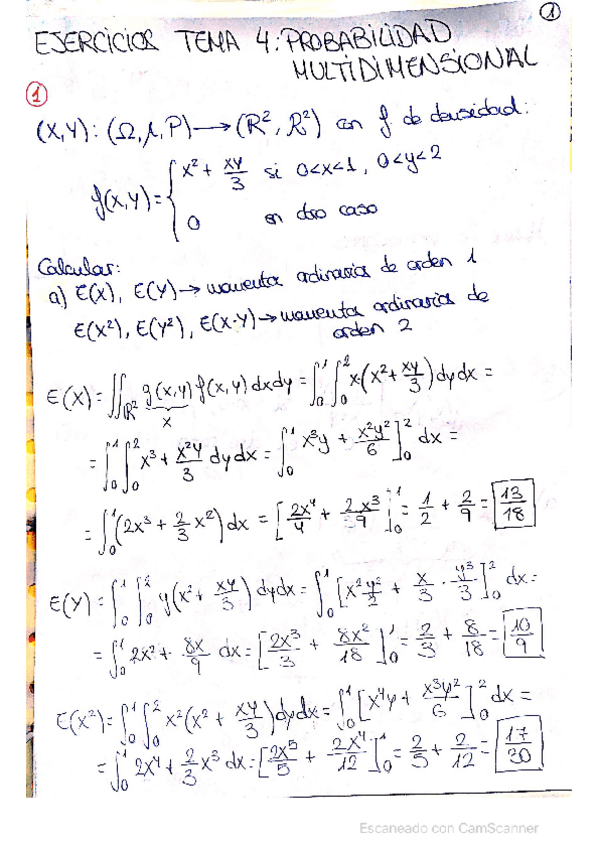 ①
EJERCICIOS TEMA 4: PROBABILIDAD
MULTIDIMENSIONAL
①
(X,Y): (Ω, A, P) → (R², B²) con f de densidad:
f(x,y) = { x² + xy/3 si 0<x<1, 0<y<2
0 en otro caso
Calcular:
a) E(X), E(Y) → momentos ordinarios de orden 1
E(X²), E(Y²), E(X·Y) → momentos ordinarios de
orden 2
E(X) = ∬_R² g(x,y) f(x,y) dxdy = ∫₀¹ ∫₀² x·(x² + xy/3) dydx =
x
= ∫₀¹ ∫₀² x³ + x²y/3 dydx = ∫₀¹ x³y + x²y²/6 ]₀² dx =
= ∫₀¹ (2x³ + 2/3 x²) dx = [ 2x⁴/4 + 2x³/9 ]₀¹ = 1/2 + 2/9 = 13/18
E(Y) = ∫₀¹ ∫₀² y(x² + xy/3) dydx = ∫₀¹ [ x²y²/2 + x/3 · y³/3 ]₀² dx =
= ∫₀¹ 2x² + 8x/9 dx = [ 2x³/3 + 8x²/18 ]₀¹ = 2/3 + 8/18 = 10/9
E(X²) = ∫₀¹ ∫₀² x²(x² + xy/3) dydx = ∫₀¹ [ x⁴y + x³y²/6 ]₀² dx =
= ∫₀¹ 2x⁴ + 2/3 x³ dx = [ 2x⁵/5 + 2x⁴/12 ]₀¹ = 2/5 + 2/12 = 17/30
Escaneado con CamScanner